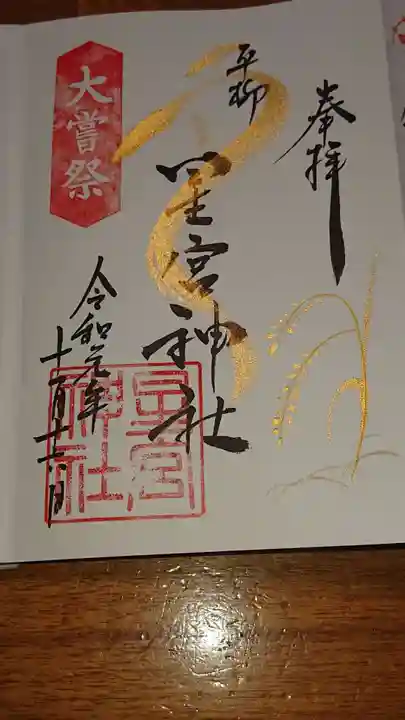 奉拝
平柳
星宮神社
大嘗祭
令和元年
十一月十六日
星宮
神社